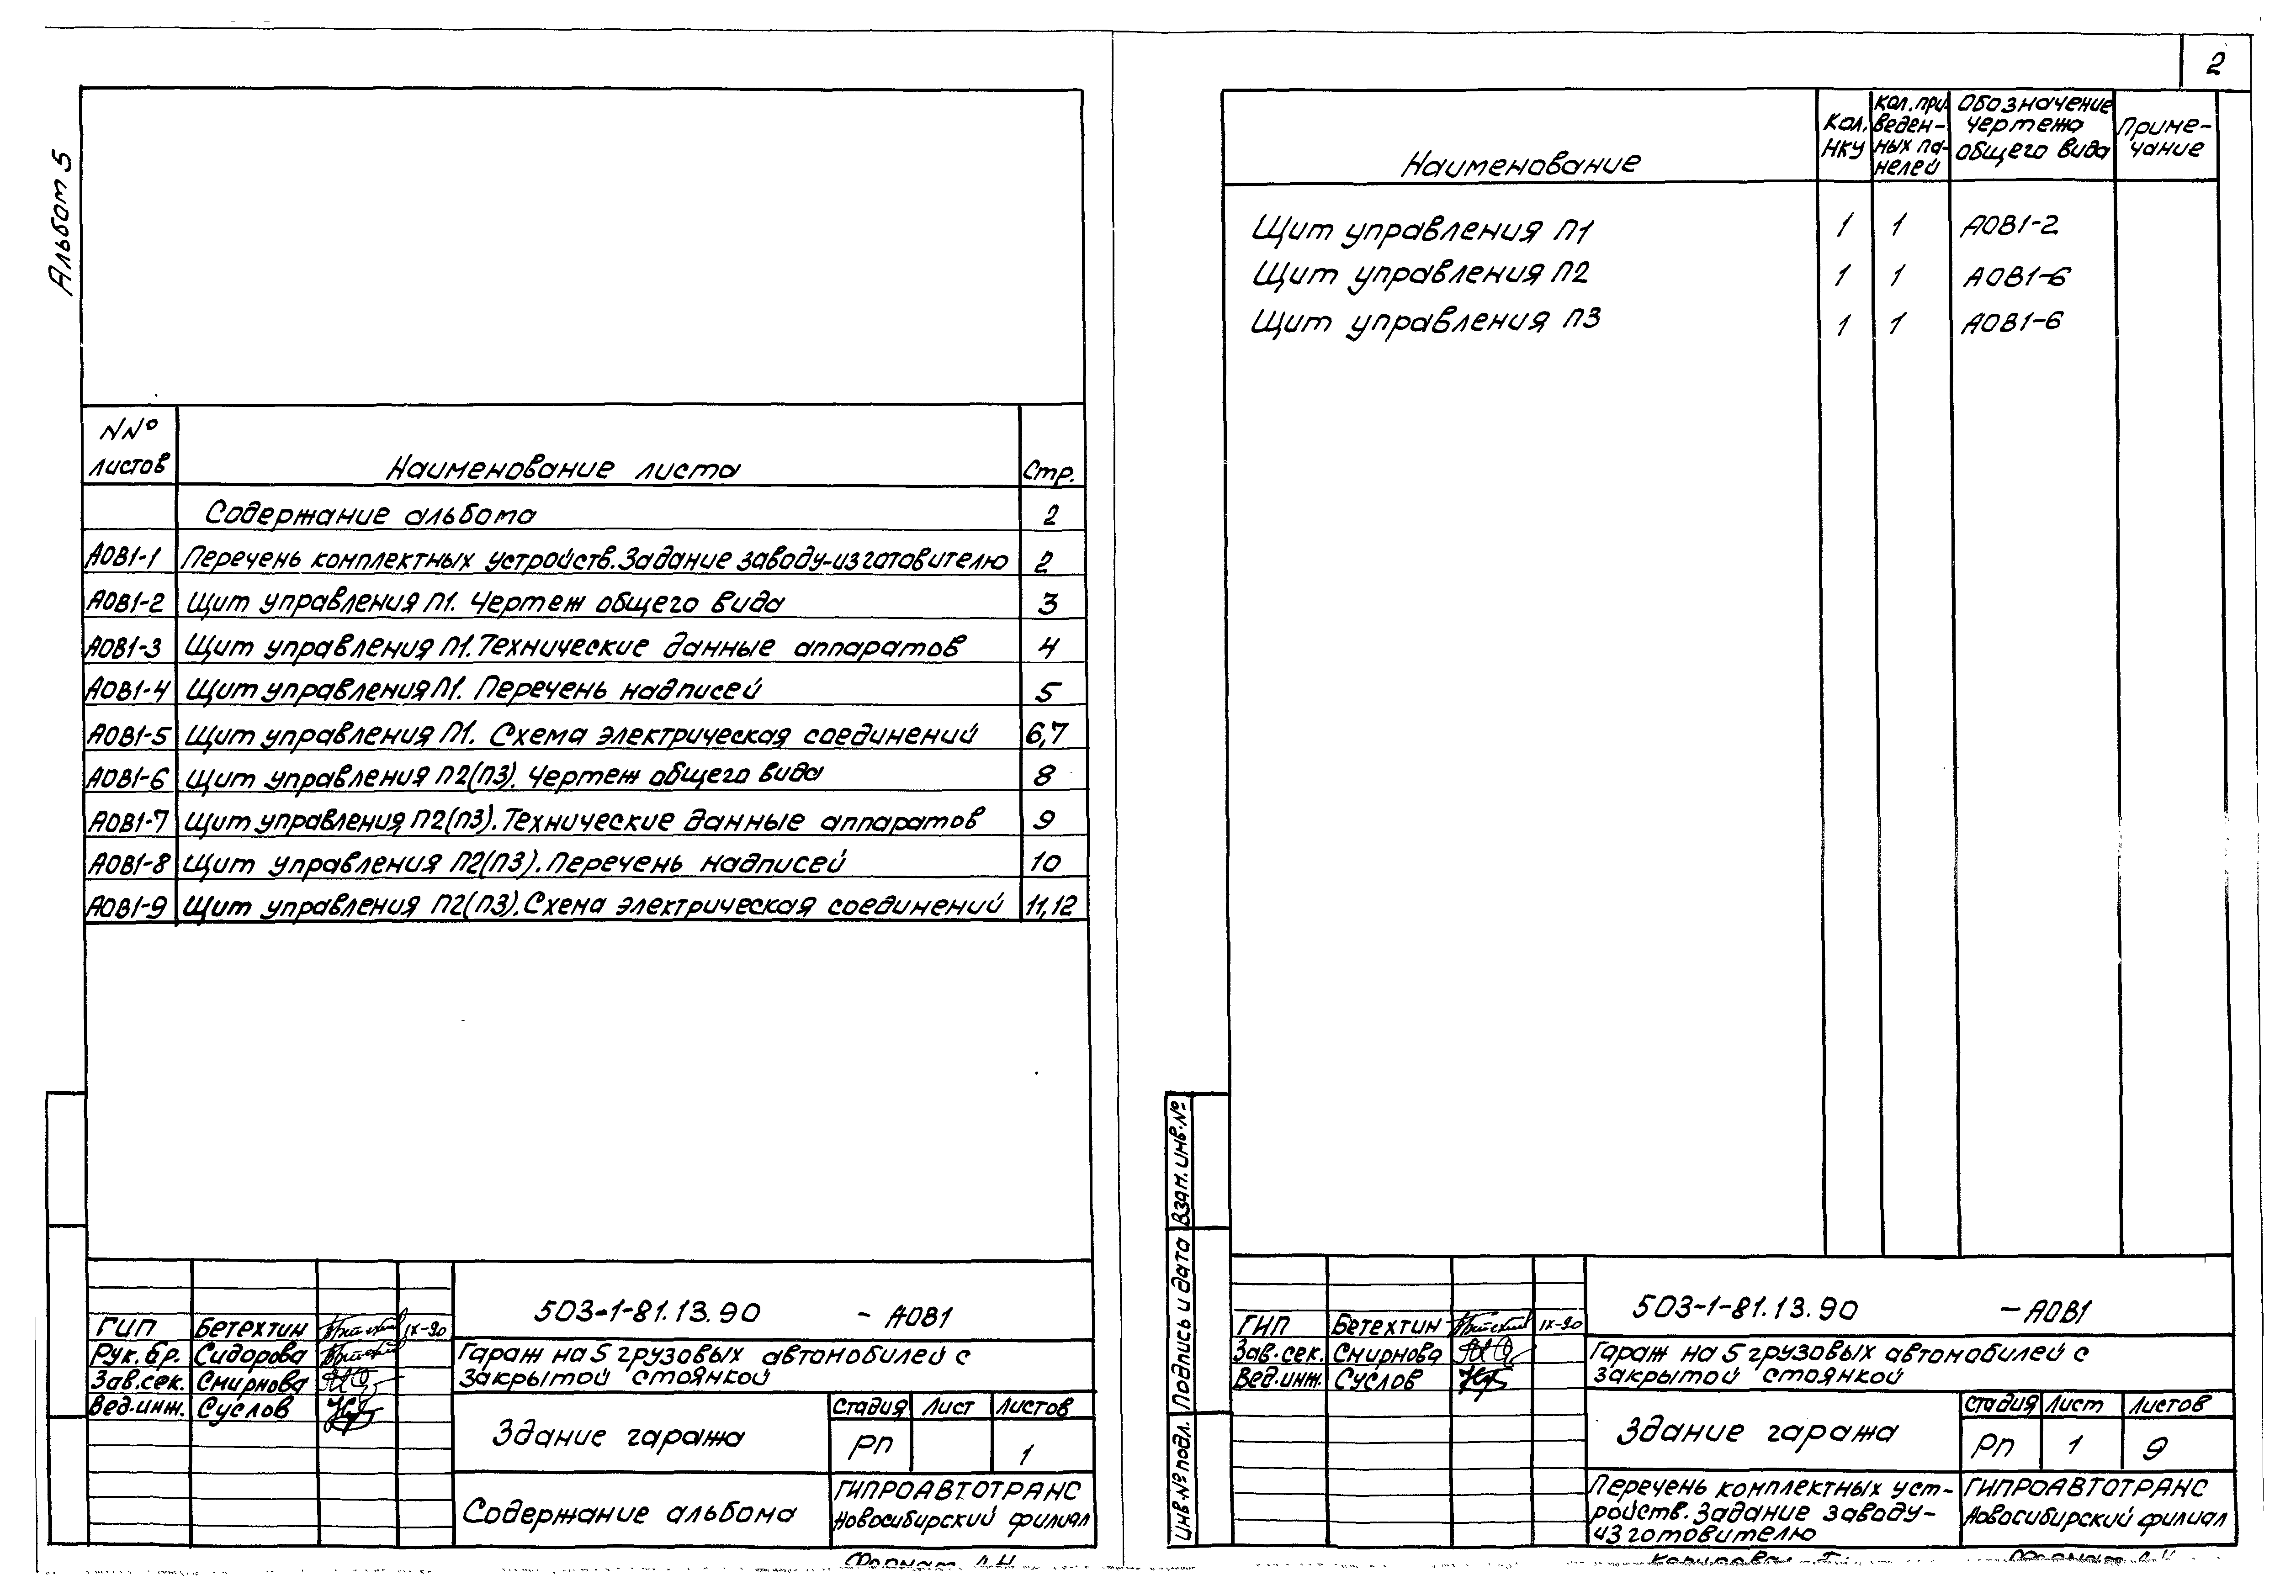 2
Альбом 5
NNº листов Наименование листа Стр.
Содержание альбома 2
АОВ1-1 Перечень комплектных устройств. Задание заводу-изготовителю 2
АОВ1-2 Щит управления П1. Чертеж общего вида 3
АОВ1-3 Щит управления П1. Технические данные аппаратов 4
АОВ1-4 Щит управления П1. Перечень надписей 5
АОВ1-5 Щит управления П1. Схема электрическая соединений 6,7
АОВ1-6 Щит управления П2(П3). Чертеж общего вида 8
АОВ1-7 Щит управления П2(П3). Технические данные аппаратов 9
АОВ1-8 Щит управления П2(П3). Перечень надписей 10
АОВ1-9 Щит управления П2(П3). Схема электрическая соединений 11,12
503-1-81.13.90 - АОВ1
ГИП Бетехтин IX-90
Рук. бр. Сидорова
Зав. сек. Смирнова
Вед. инж. Суслов
Гараж на 5 грузовых автомобилей с
закрытой стоянкой
Здание гаража
Стадия Лист Листов
РП 1
Содержание альбома
ГИПРОАВТОТРАНС
Новосибирский филиал
Наименование
Кол.
НКУ
Кол. при
веден-
ных па-
нелей
Обозначение
чертежа
общего вида
Приме-
чание
Щит управления П1 1 1 АОВ1-2
Щит управления П2 1 1 АОВ1-6
Щит управления П3 1 1 АОВ1-6
Взам. инв. №
Подпись и дата
Инв. № подл.
503-1-81.13.90 - АОВ1
ГИП Бетехтин IX-90
Зав. сек. Смирнова
Вед. инж. Суслов
Гараж на 5 грузовых автомобилей с
закрытой стоянкой
Здание гаража
Стадия Лист Листов
РП 1 9
Перечень комплектных уст-
ройств. Задание заводу-
изготовителю
ГИПРОАВТОТРАНС
Новосибирский филиал